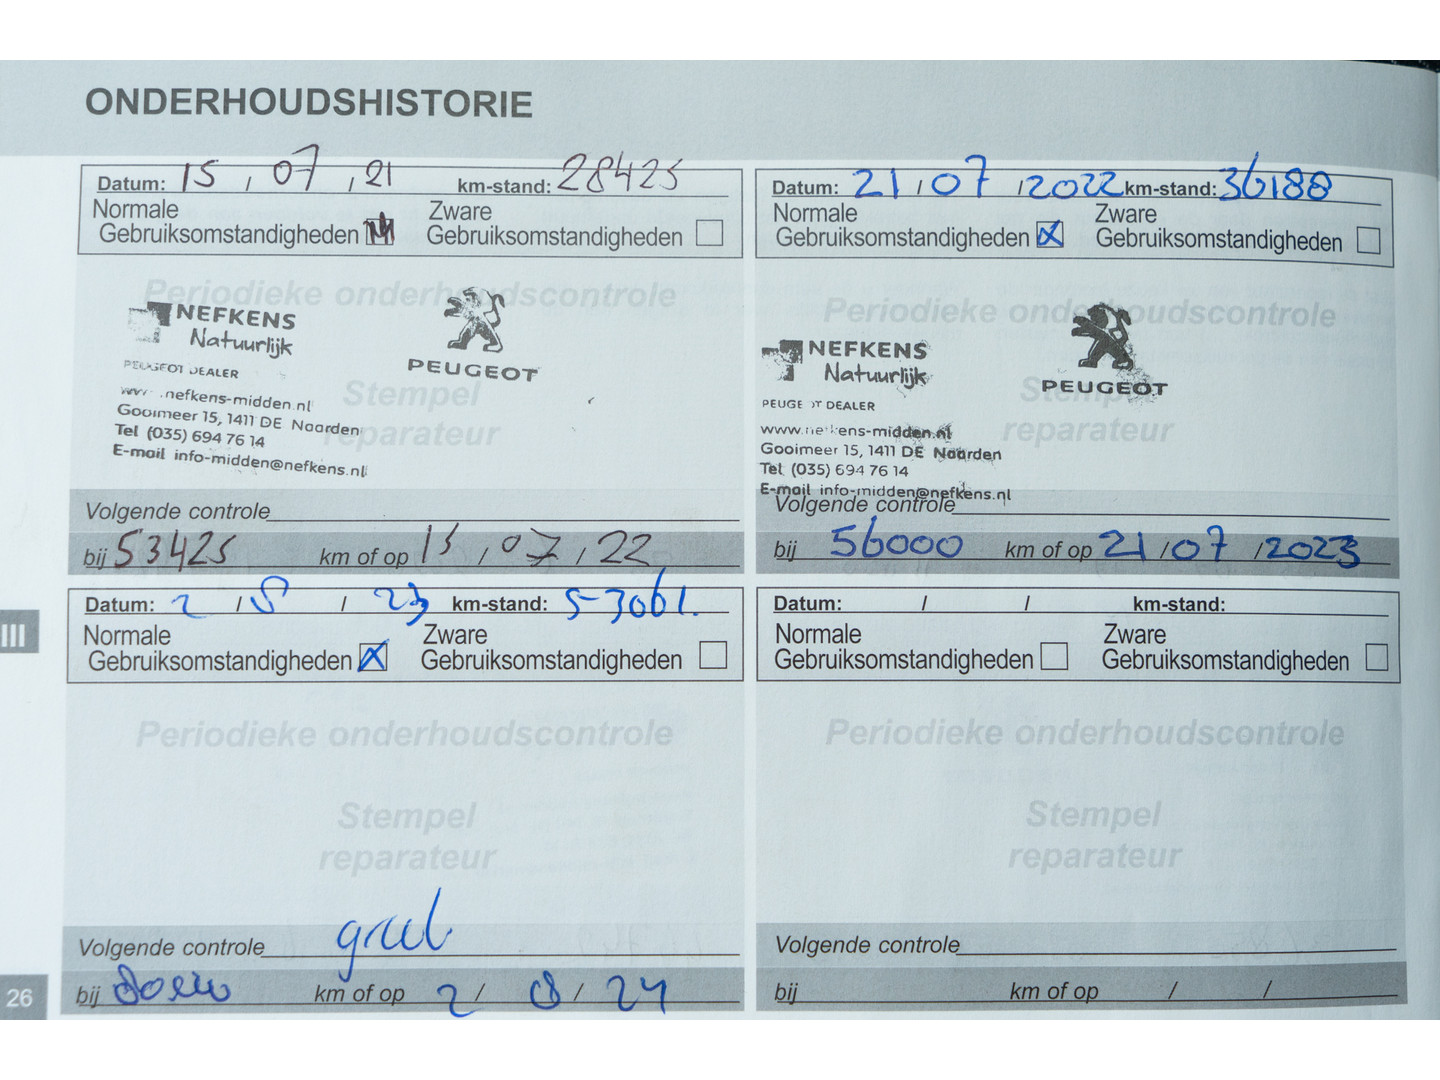 ONDERHOUDSHISTORIE
Datum: 15 / 07 / 21 km-stand: 28425
Normale
Gebruiksomstandigheden
Zware
Gebruiksomstandigheden
Periodieke onderhoudscontrole
NEFKENS
Natuurlijk
PEUGEOT
PEUGEOT DEALER
www.nefkens-midden.nl
Stempel
reparateur
Gooimeer 15, 1411 DE Naarden
Tel (035) 694 76 14
E-mail info-midden@nefkens.nl
Volgende controle
bij 53425 km of op 15 / 07 / 22
Datum: 21 / 07 / 2022 km-stand: 36188
Normale
Gebruiksomstandigheden
Zware
Gebruiksomstandigheden
Periodieke onderhoudscontrole
NEFKENS
Natuurlijk
PEUGEOT
PEUGEOT DEALER
Stempel
reparateur
www.nefkens-midden.nl
Gooimeer 15, 1411 DE Naarden
Tel (035) 694 76 14
E-mail info-midden@nefkens.nl
Volgende controle
bij 56000 km of op 21 / 07 / 2023
III
Datum: 2 / 8 / 23 km-stand: 53061.
Normale
Gebruiksomstandigheden
Zware
Gebruiksomstandigheden
Periodieke onderhoudscontrole
Stempel
reparateur
Volgende controle
bij km of op 2 / 8 / 24
Datum: / / km-stand:
Normale
Gebruiksomstandigheden
Zware
Gebruiksomstandigheden
Periodieke onderhoudscontrole
Stempel
reparateur
Volgende controle
bij km of op / /
26